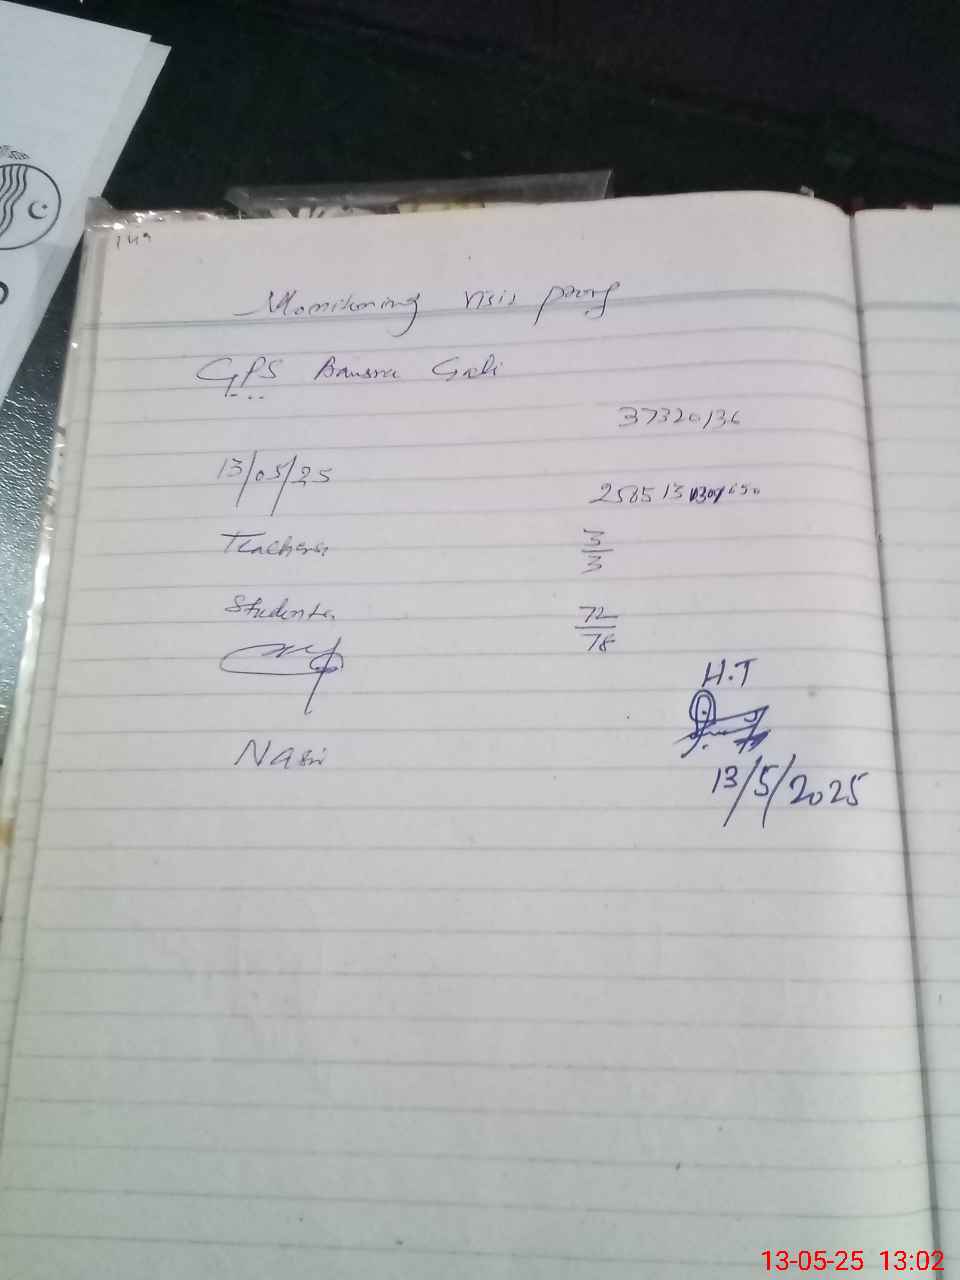 149
Monitoring visit proof
GPS Bansra Gali
37320136
13/05/25
Teachers 3/3
Students 72/78
H.T
Nasir
13/5/2025
13-05-25 13:02